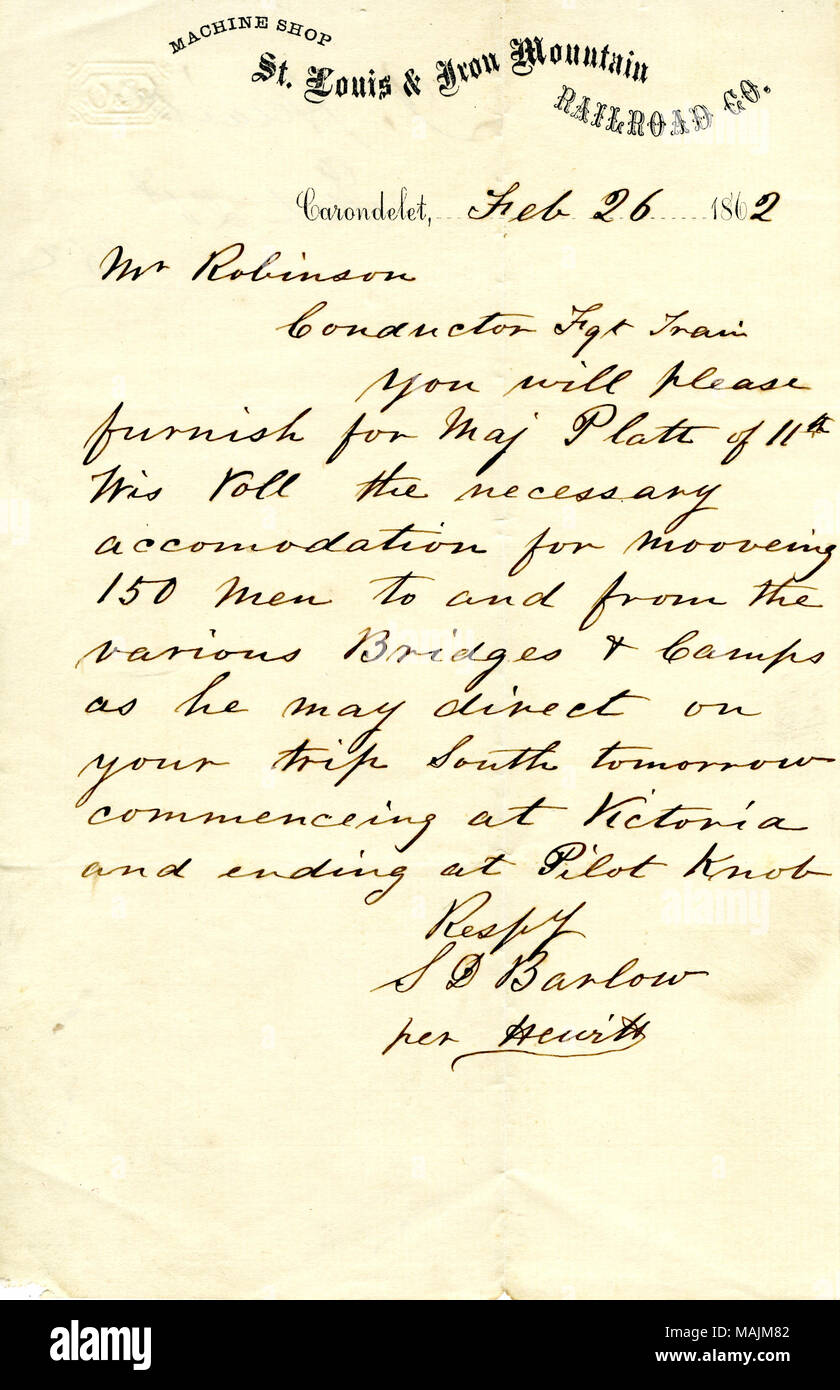 MACHINE SHOP
St. Louis & Iron Mountain
RAILROAD CO.
Carondelet, Feb 26 1862
Mr Robinson
Conductor Fgt Train
You will please
furnish for Maj Platt of 11th
Wis Voll the necessary
accomodation for mooveing
150 Men to and from the
various Bridges & Camps
as he may direct on
your trip South tomorrow
commenceing at Victoria
and ending at Pilot Knob
Respy
S D Barlow
per Hewitt
alamy
Image ID: MAJM82
www.alamy.com